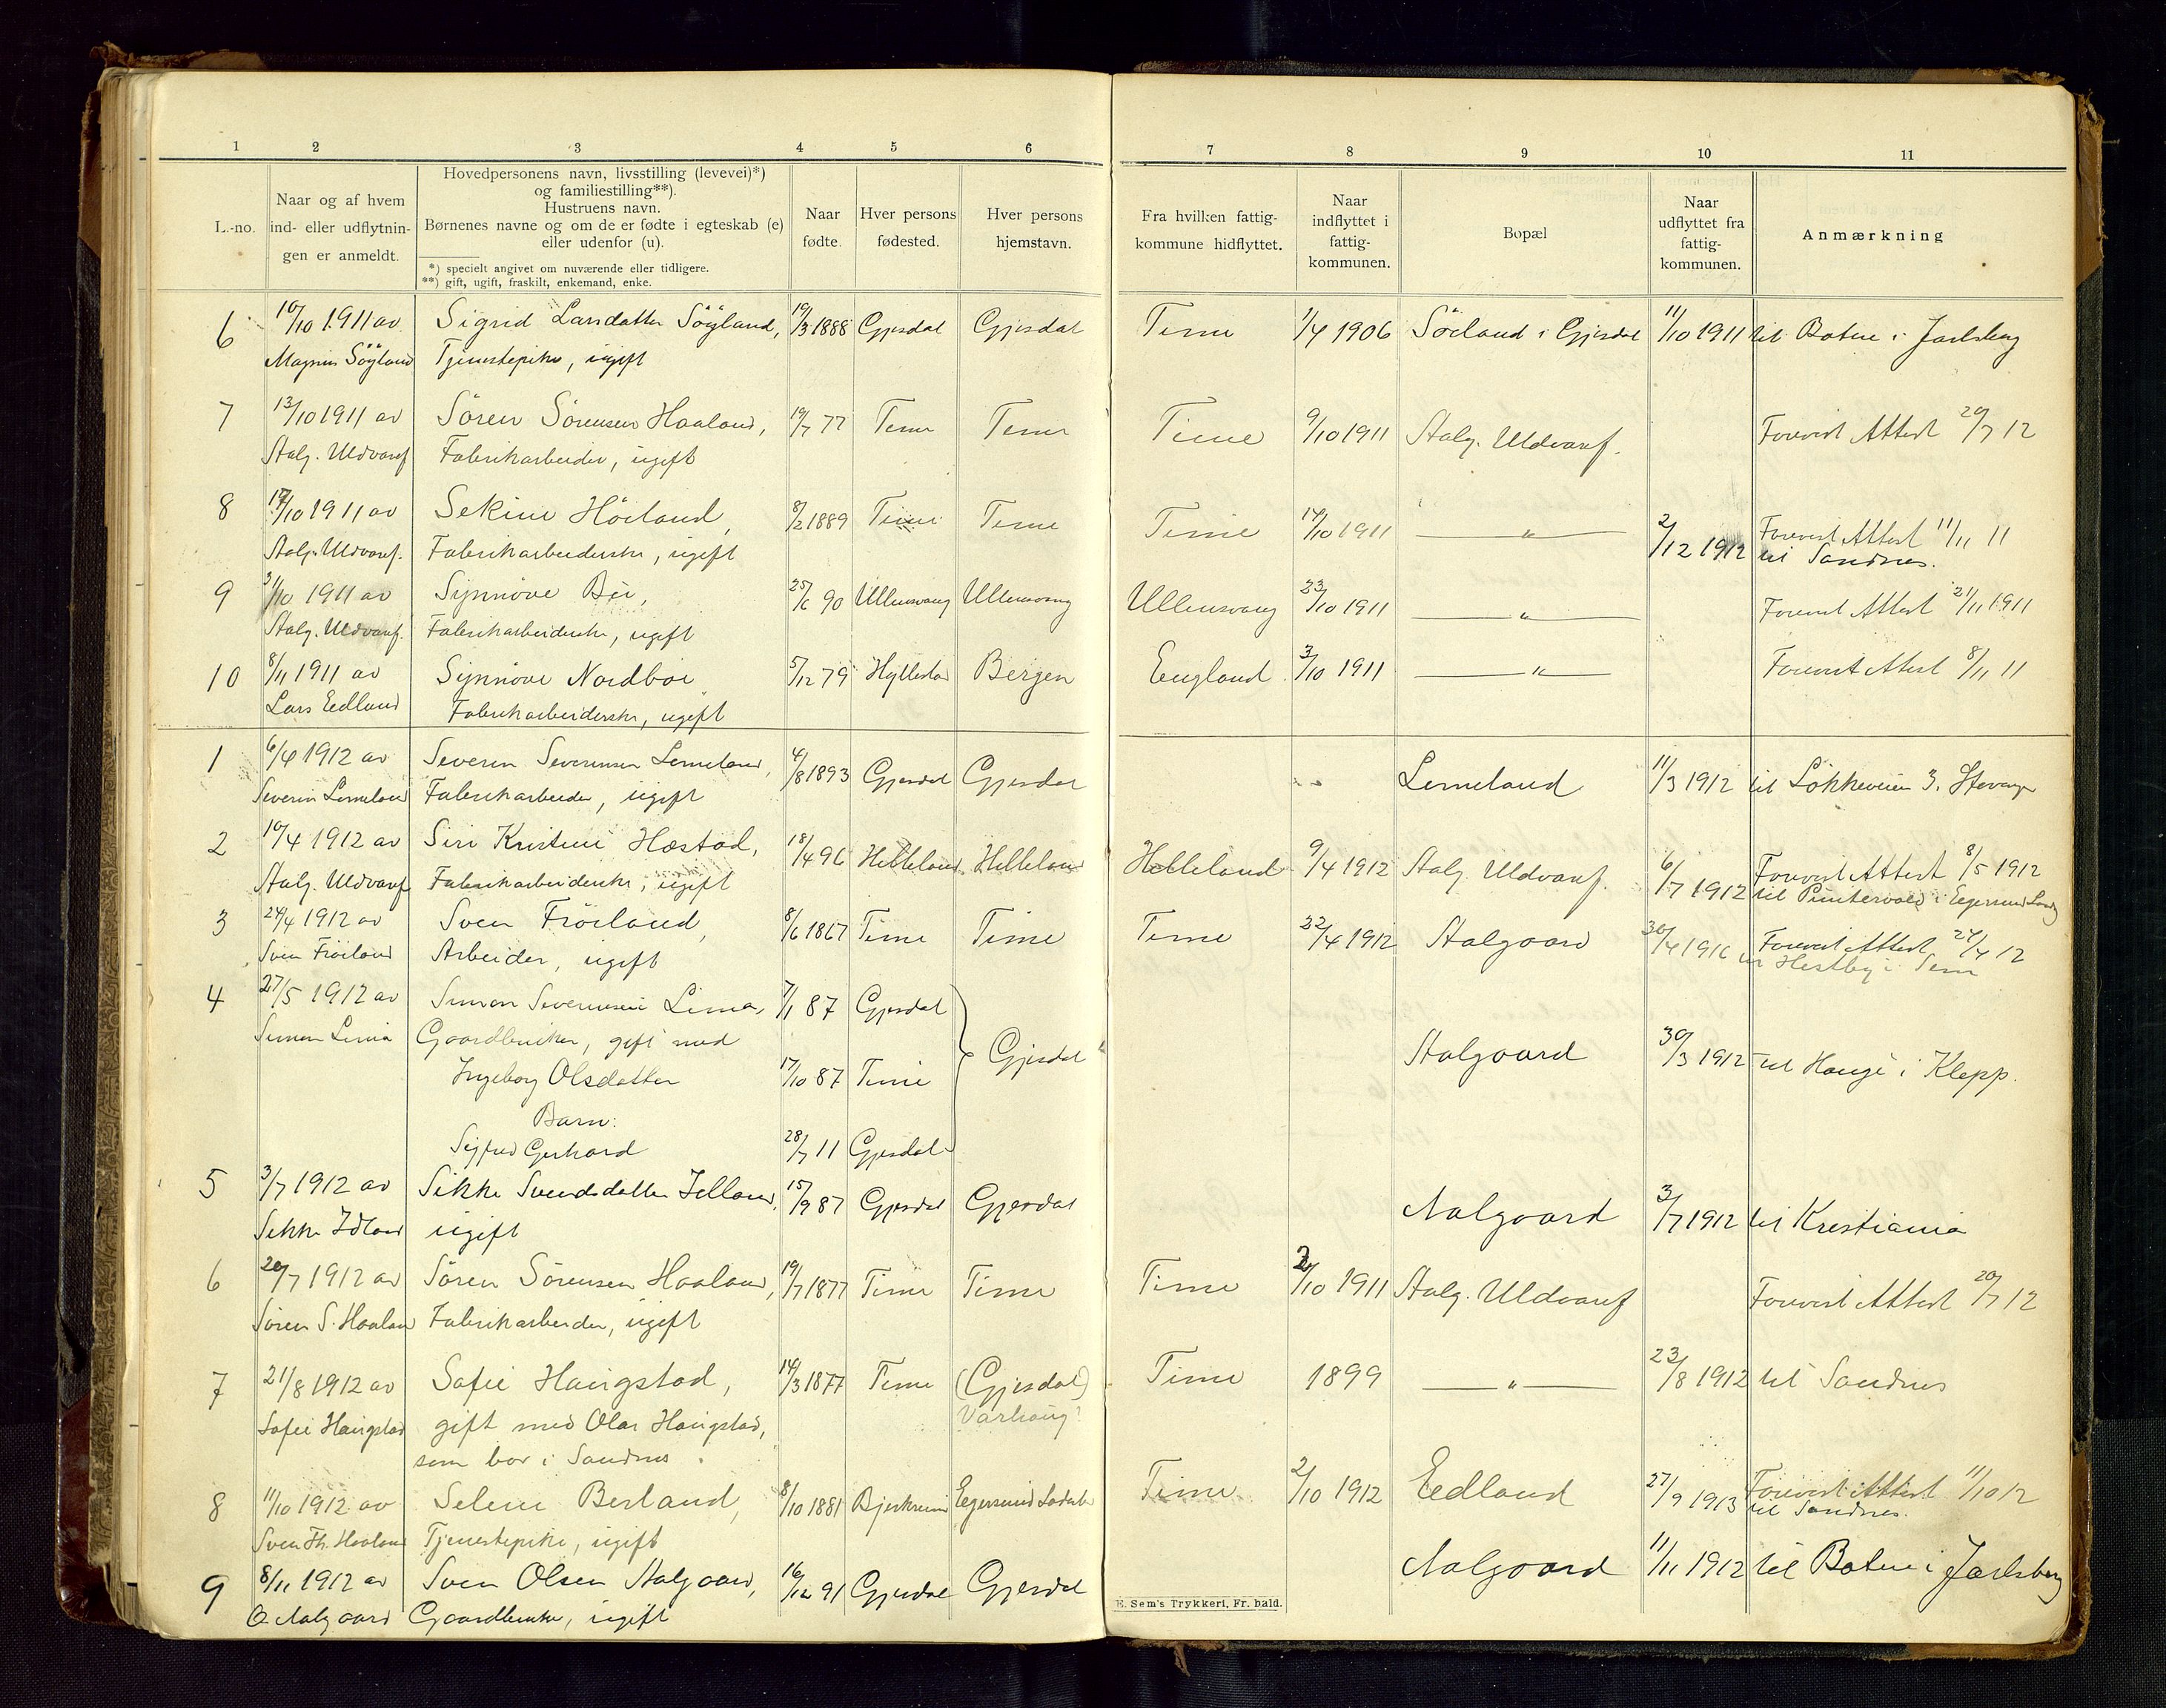 1 2 3 4 5 6 7 8 9 10 11
L.-no.
Naar og af hvem
ind- eller udflytnin-
gen er anmeldt.
Hovedpersonens navn, livsstilling (levevei)*)
og familiestilling**).
Hustruens navn.
Børnenes navne og om de er fødte i egteskab (e)
eller udenfor (u).
*) specielt angivet om nuværende eller tidligere.
**) gift, ugift, fraskilt, enkemand, enke.
Naar
fødte.
Hver persons
fødested.
Hver persons
hjemstavn.
Fra hvilken fattig-
kommune hidflyttet.
Naar
indflyttet i
fattig-
kommunen.
Bopæl
Naar
udflyttet fra
fattig-
kommunen.
Anmærkning
6 10/10 1911 av Sigrid Larsdatter Söyland, 19/3 1888 Gjesdal Gjesdal Time 1/4 1906 Söiland i Gjesdal 11/10 1911 til Botne i Jarlsberg
Magnus Söyland Tjenestepike, ugift
7 13/10 1911 av Sören Sörensen Haaland, 19/7 77 Time Time Time 9/10 1911 Aalg. Uldvaref. Forevist Attest 20/7 12
Aalg. Uldvaref Fabrikarbeider, ugift
8 17/10 1911 av Sekine Höiland, 8/2 1889 Time Time Time 14/10 1911 — " — 2/12 1912 Forevist Attest 11/11 11
Aalg. Uldvaref. Fabrikarbeiderske, ugift til Sandnes.
9 31/10 1911 av Synnöve Bu, 25/6 90 Ullensvang Ullensvang Ullensvang 23/10 1911 — " — Forevist Attest 21/11 1911
Aalg. Uldvaref. Fabrikarbeiderske, ugift
10 8/11 1911 av Synnöve Nordböe 5/12 79 Hyllestad Bergen England 3/10 1911 — " — Forevist Attest 8/11 11
Lars Edland Fabrikarbeiderske, ugift
1 6/4 1912 av Severin Severinsen Limeland, 4/8 1893 Gjesdal Gjesdal Limeland 11/3 1912 til Lökkeveien 3. Stavanger
Severin Limeland Fabrikarbeider, ugift
2 10/4 1912 av Siri Kristine Hæstad, 18/4 96 Helleland Helleland Helleland 9/4 1912 Aalg. Uldvaref. 6/7 1912 Forevist Attest 8/5 1912
Aalg. Uldvaref Fabrikarbeiderske, ugift til i Egersund Landsg
3 24/4 1912 av Sven Fröiland, 8/6 1867 Time Time Time 22/4 1912 Aalgaard 30/4 1916 Forevist Attest 24/4 12
Sven Fröiland Arbeider, ugift til Hestby i Sem
4 27/5 1912 av Simon Severinsen Lima, 7/1 87 Gjesdal
Simon Lima Gaardbruker, gift med Gjesdal Aalgaard 30/3 1912 til Hauge i Klepp.
Ingeborg Olsdatter 17/10 87 Time
Barn:
Sigfred Gerhard 28/7 11 Gjesdal
5 3/7 1912 av Sikke Svendsdatter Idland, 15/9 87 Gjesdal Gjesdal Aalgaard 3/7 1912 til Kristiania
Sikke Idland ugift
6 20/7 1912 av Sören Sörensen Haaland, 19/7 1877 Time Time Time 2/10 1911 Aalg. Uldvaref Forevist Attest 20/7 12
Sören S. Haaland Fabrikarbeider, ugift
7 21/8 1912 av Sofie Haugstad, 14/3 1877 Time (Gjesdal) Time 1899 — " — 23/8 1912 til Sandnes
Sofie Haugstad gift med Olav Haugstad, Varhaug?
som bor i Sandnes.
8 11/10 1912 av Seline Berland, 8/10 1881 Bjerkreim Egersund Ladested Time 2/10 1912 Edland 27/9 1913 Forevist Attest 11/10 12
Sven Th. Haaland Tjenestepike, ugift til Sandnes.
9 8/11 1912 av Sven Olsen Aalgaard, 16/12 91 Gjesdal Gjesdal Aalgaard 11/11 1912 til Botne i Jarlsberg
O Aalgaard Gaardbruker, ugift
E. Sem's Trykkeri. Fr. hald.